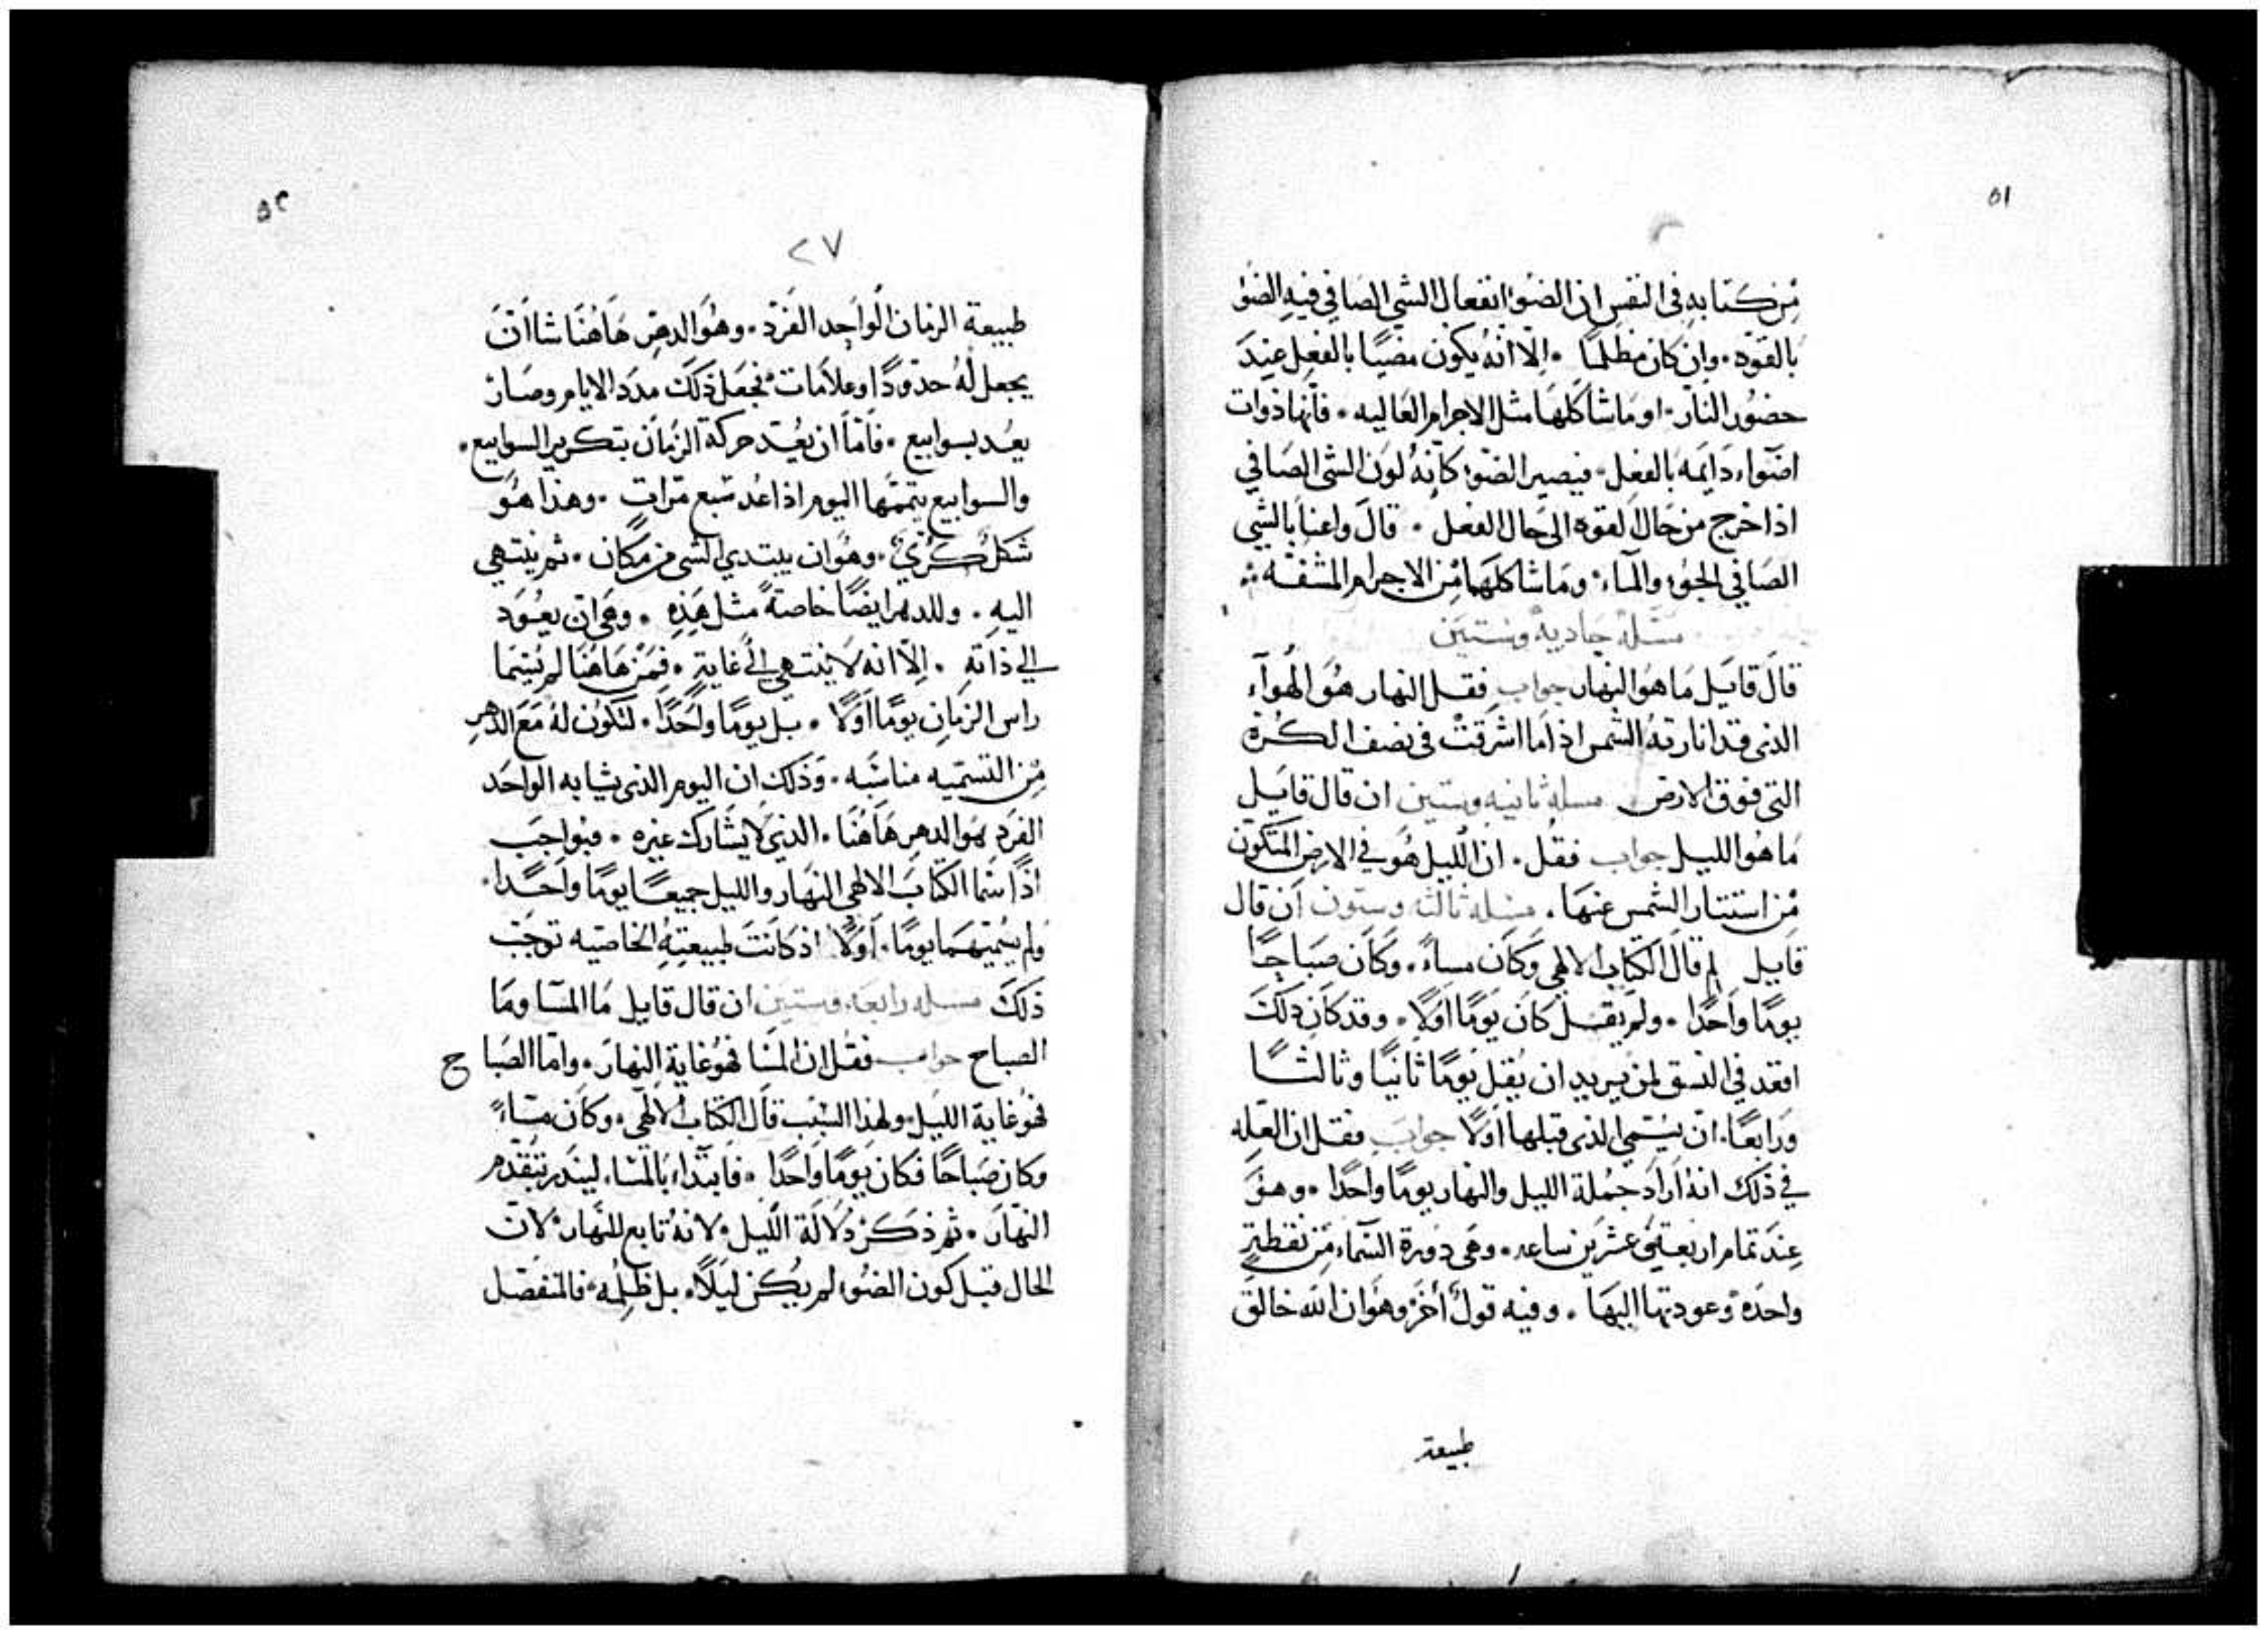 ٥١
من كتابه في النفس ان الضوء انفعال الشي الصافي فيه الضوء
بالقوة . وان كان مظلما . الا انه يكون مضيا بالفعل عند
حضور النار . او ما شاكلها مثل الاجرام العاليه . فانها ذوات
اضواء دايمه بالفعل . فيصير الضوء كانه لون الشي الصافي
اذا خرج من حال القوه الى حال الفعل . قال واعنا بالشي
الصافي الجو والماء . وما شاكلهما من الاجرام المشفه ∴
مسله حاديه وستين
قال قايل ما هو النهار جواب فقل النهار هو الهواء
الذى قد انارته الشمس اذا ما اشرقت فى نصف الكرة
التى فوق الارض . مسله ثانيه وستين ان قال قايل
ما هو الليل جواب فقل . ان الليل هو في الارض المتكون
من استتار الشمس عنها . مسله ثالثه وستون ان قال
قايل لم قال الكتاب الالهي وكان مساءً . وكان صباحًا
يومًا واحدًا . ولم يقل كان يومًا اولًا . وقد كان ذلك
اقعد في النسق لمن يريد ان يقل يومًا ثانيًا وثالثًا
ورابعًا . ان يسمي الذى قبلها اولًا جواب فقل ان العله
في ذلك انه اراد جملة الليل والنهار يومًا واحدًا . وهو
عند تمام اربعة عشرين ساعه . وهي دورة السماء من نقطةٍ
واحدة وعودتها اليها . وفيه قولٌ أخر وهو ان الله خالق
طبيعة
٥٢
٢٧
طبيعة الزمان الواحد الفرد . وهو الدهر هاهنا شا ان
يجعل له حدودًا وعلامات . فجعل ذلك مدد الايام وصار
يعد بسوابيع . فاما ان يعتد حركة الزمان بتكرير السوابيع .
والسوابيع يتممها اليوم اذا عد سبع مرات . وهذا هو
شكل كري . وهو ان يبتدي الشي من مكان . ثم ينتهي
اليه . وللدهر ايضًا خاصة مثل هذه . وهي ان يعود
الي ذاته . الا انه لا ينتهي الي غاية . فمن هاهنا لم يسما
راس الزمان يومًا اولًا . بل يومًا واحدًا . لتكون له مع الدهر
من التسميه مناسبه . وذلك ان اليوم الذى يشابه الواحد
الفرد هو الدهر هاهنا . الذي لا يشارك غيره . فبواجب
اذًا سما الكتاب الالهي النهار والليل جميعًا يومًا واحدًا .
ولم يسميهما يومًا . أولًا اذ كانت طبيعته الخاصيه توجب
ذلك مسله رابعه وستين ان قال قايل ما المسا وما
الصباح جواب فقل ان المسا فهو غاية النهار . واما الصباح
فهو غاية الليل . ولهذا السبب قال الكتاب الالهي . وكان مساءً
وكان صباحًا فكان يومًا واحدًا . فابتداء بالمساء ليندر بتقدم
النهار . ثم ذكر دلالة الليل . لانه تابع للنهار . لان
الحال قبل كون الضوء لم يكن ليلًا . بل ظلمه . فالمنفصل